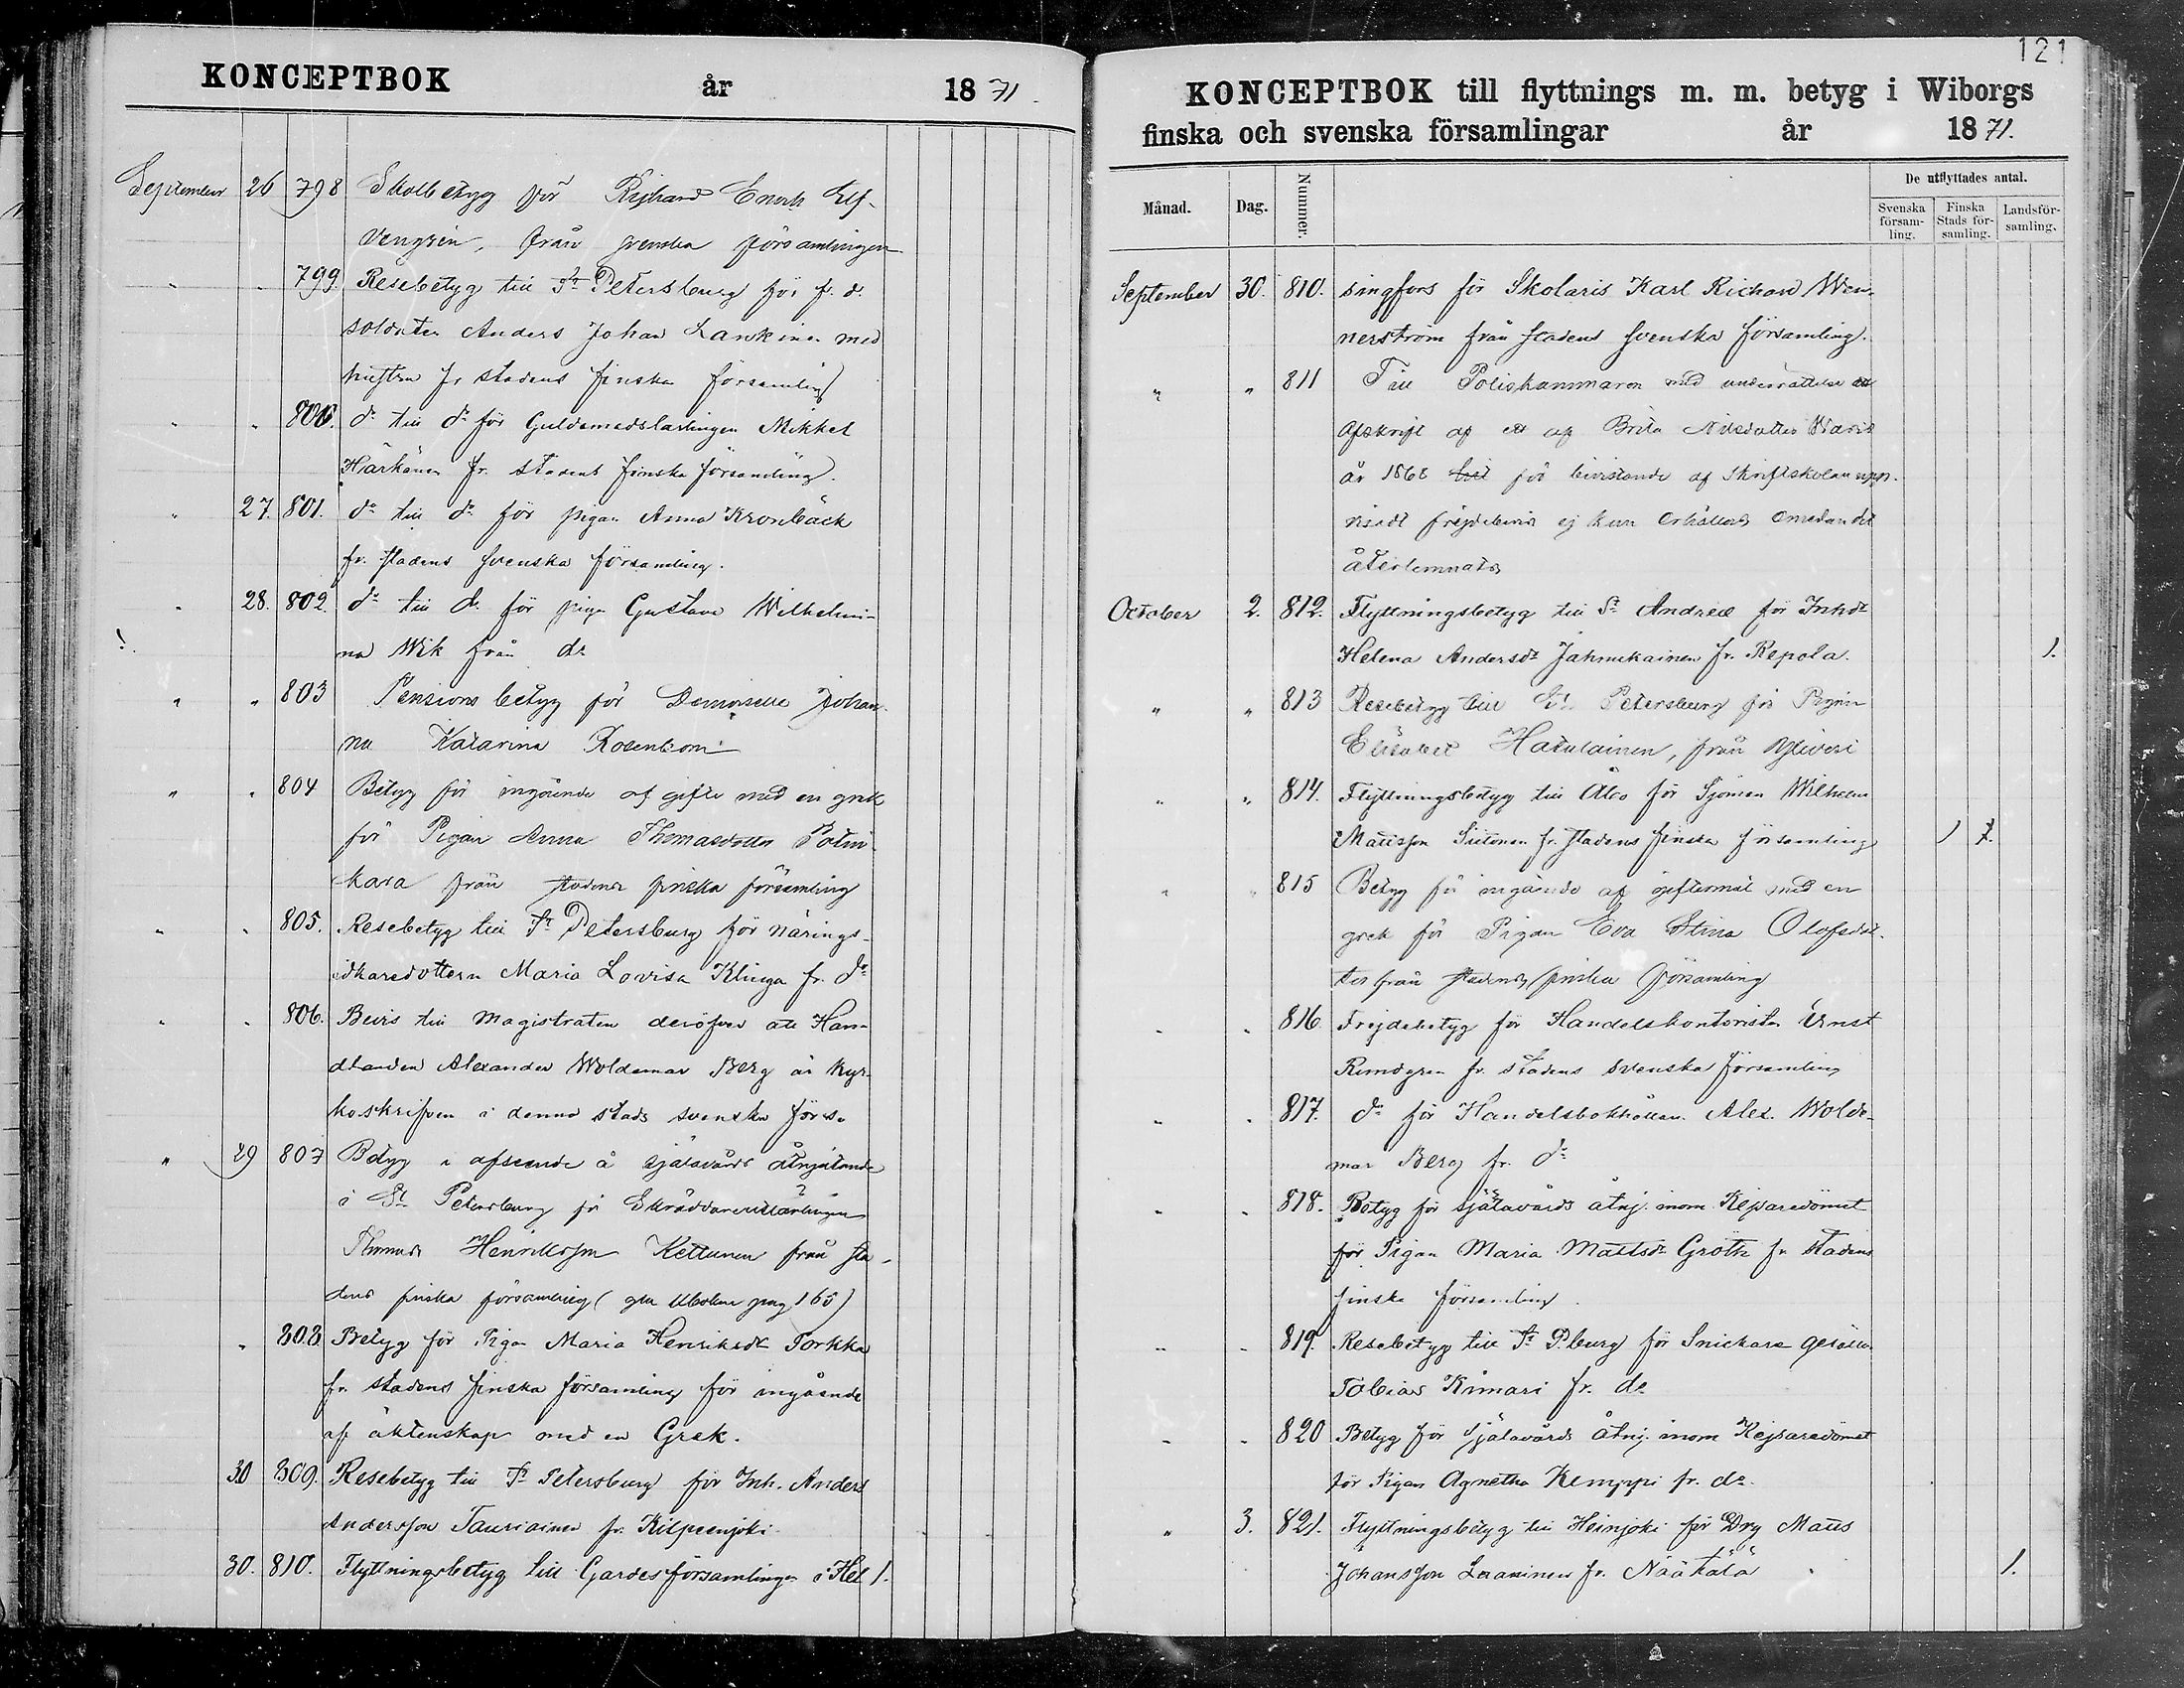 KONCEPTBOK år 1871.
September 26 798 Skolbetyg för Rikhard Enoch Elf-
vengren, från svenska församlingen
" " 799. Resebetyg till St Petersburg för f. d.
soldaten Anders Johan Lankinen med
hustru fr stadens finska församling
" " 800. do till do för Guldsmedslärlingen Mikkel
Härkönen fr. stadens finska församling.
" 27. 801. do till do för pigan Anna Kronbäck
fr. stadens svenska församling.
" 28. 802. do till do för pigan Gustava Wilhelmi-
na Wik från do
" " 803 Pensions betyg för Demoiselle Johan-
na Katarina Rosenbom
" " 804 Betyg för ingående af gifte med en grek
för Pigan Anna Thomasdotter
från stadens finska församling
" " 805. Resebetyg till St Petersburg för närings-
idkaredottern Maria Lovisa Klinga fr. do
" " 806. Bevis till Magistraten deröfver att Han-
dlanden Alexander Woldemar Berg är kyr-
koskrifven i denna stads svenska förs.
" 29 807 Betyg i afseende å själavårds åtnjutande
i St Petersburg för
Thomas Henriksson Kettunen från sta-
dens finska församling ( pag 165)
" 808 Betyg för Pigan Maria Henriksdt Torkka
fr. stadens finska församling för ingående
af äktenskap med en Grek.
30 809. Resebetyg till St Petersburg för Inh. Anders
Andersson Tauriainen fr. Kilpeenjoki
30. 810. Flyttningsbetyg till Gardesförsamlingen i Hel 1.
121
KONCEPTBOK till flyttnings m. m. betyg i Wiborgs
finska och svenska församlingar år 1871.
Månad. Dag. Nummer. De utflyttades antal.
Svenska försam-ling. Finska Stads för-samling. Landsför-samling.
September 30. 810. singfors för Skolaris Karl Richard Wen-
nerström från stadens svenska församling.
" " 811 Till Polis kammaren med underrättelse att
afskrift af ett af Brita Nilsdotter
år 1868 för bivistande af skriftskolan upp-
visadt frejdebevis ej kan erhållas emedan det
återlemnats
October 2. 812. Flyttningsbetyg till St Andreæ för Inhdt
Helena Andersdt Jahnukainen fr. Repola. 1.
" " 813 Resebetyg till St Petersburg för Pigan
Elisabet Hatulainen, från Yliveri
" " 814. Flyttningsbetyg till Åbo för Sjöman Wilhelm
Mattsson Siitonen fr. stadens finska församling 1
" " 815 Betyg för ingående af giftermål med en
grek för Pigan Eva Stina Olofsdot-
ter från stadens finska församling
" " 816. Frejdebetyg för Handelskontoristen Ernst
Rundgren fr. stadens svenska församling
" " 817. do för Handelsbokhållaren Alex. Wolde-
mar Berg fr. do
" " 818. Betyg för själavårds åtnj. inom Kejsaredömet
för Pigan Maria Mattsdr Gröth fr stadens
finska församling.
" " 819. Resebetyg till St P.burg för Snickare gesällen
Tobias Kimari fr. do
" " 820 Betyg för Själavårds åtnj. inom Kejsaredömet
för Pigan Agnetha Kemppi fr. do.
" 3. 821. Flyttningsbetyg till Heinjoki för Drg Matts
Johansson fr. Näätälä 1.